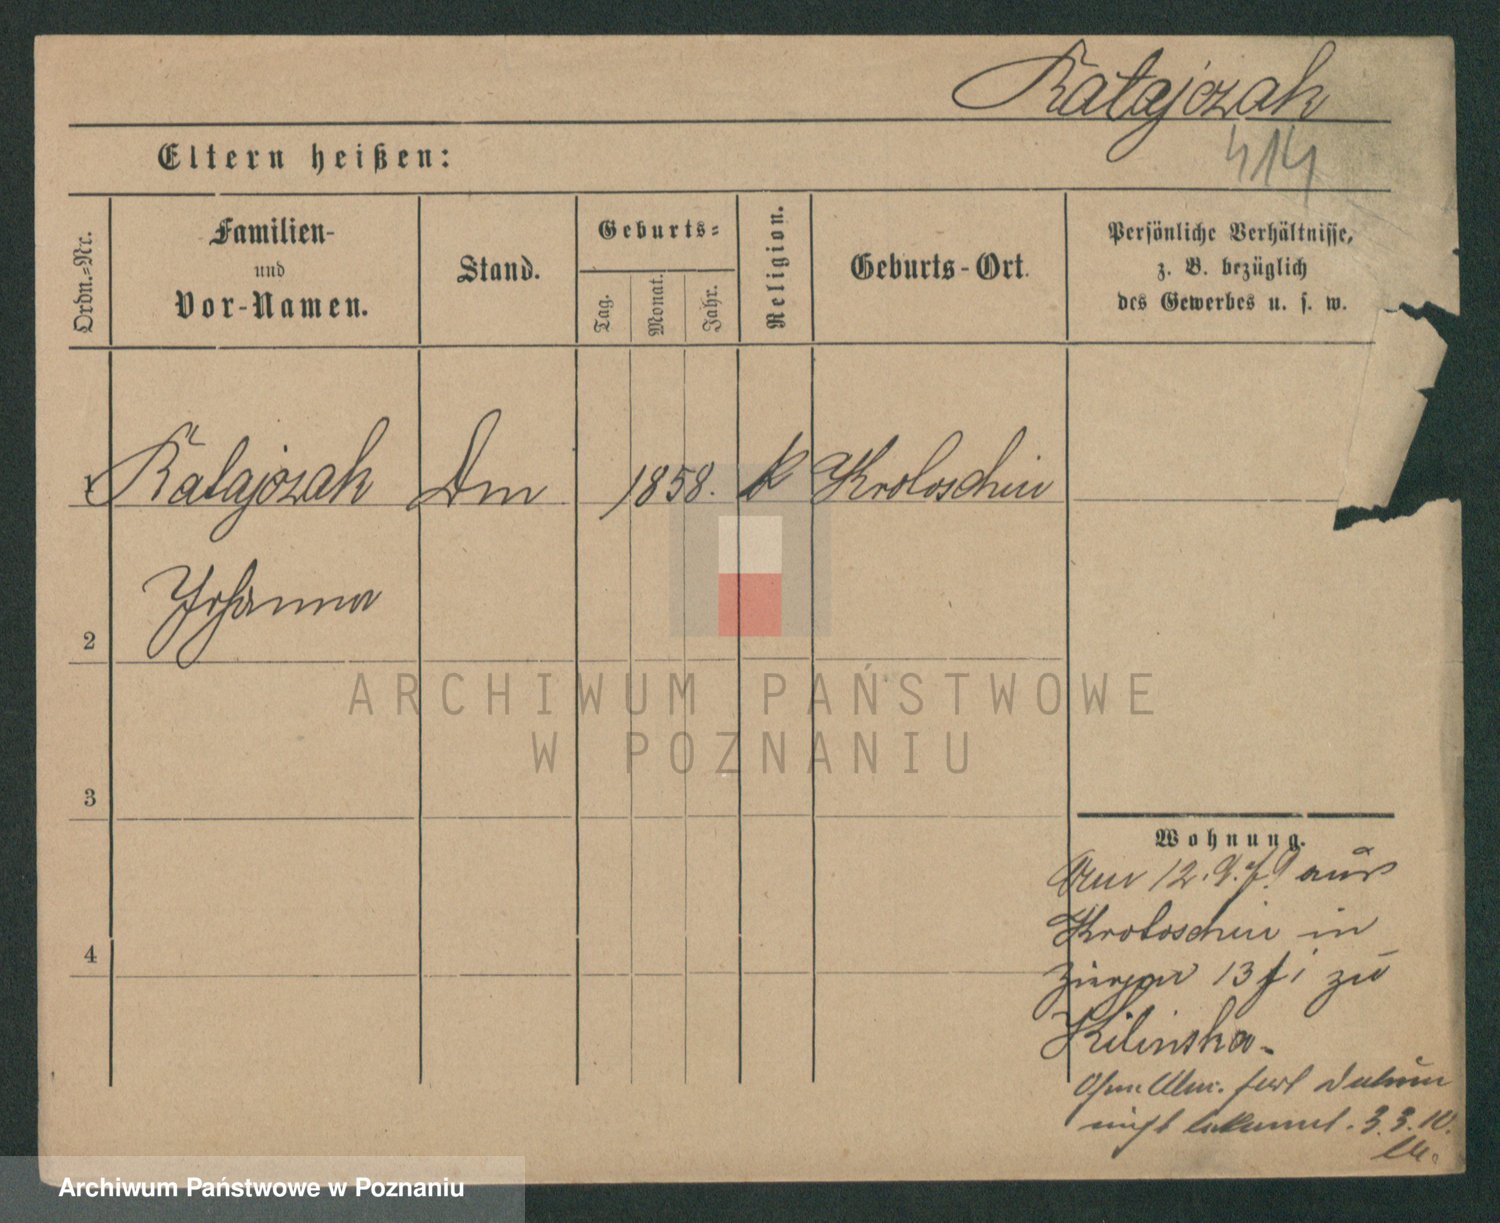 Ratajczak
414
Eltern heißen:
Ordn.-Nr.
Familien-
und
Vor-Namen.
Stand.
Geburts-
Tag.
Monat.
Jahr.
Religion.
Geburts-Ort.
Persönliche Verhältnisse,
z. B. bezüglich
des Gewerbes u. s. w.
1 Ratajczak Dm 1858. k Krotoschin
Johanna
2
ARCHIWUM PAŃSTWOWE
W POZNANIU
3
4
Wohnung.
12.9. aus
Krotoschin in
13 zu
Kilinska-
Ohne Datum
nicht bekannt. 3.3.10.
Archiwum Państwowe w Poznaniu